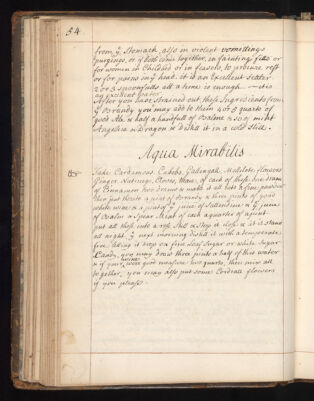 54
from yͤ Stomach, also in violent vomettings
purgings, or if both come together, in fainting fitts or
for women in Childbed or in feavors, to procure rest
or for paens in yͤ head. it is an Excellent
2 or 3 spoonfulls att a time is enough
an Excellent
After you have Strained out these Ingredients from
yͤ Brandy you may add to them 4 or 5 quarts of
good Ale & half a handfull of Balme & so of might
Angelica & Dragon & distill it in a Cold Still.
Aqua Mirabilis
Take Cardamoms, Cubebs, Gallengall, Mellilote flowers
Ginger, Nutmegs, Cloves, Mace, of each of these one dram
of Cinnamon two drams & make it all into a fine powder
then put thereto a pint of Brandy & three pints of good
white wine & a pint of yͤ juice of Sallendine & yͤ juice
of Balm & Spear Mint of each a quarter of a pint
put all these into a Still & stop it close & let it stand
all night yͤ next morning distill it with a temperate
fire letting it drop on fine loaf Sugar or white Sugar
Candy, you may draw three pints & half of this water
& if your wine were good measure two quarts, then mix all
together, you may also put some Cordiall flowers
if you please